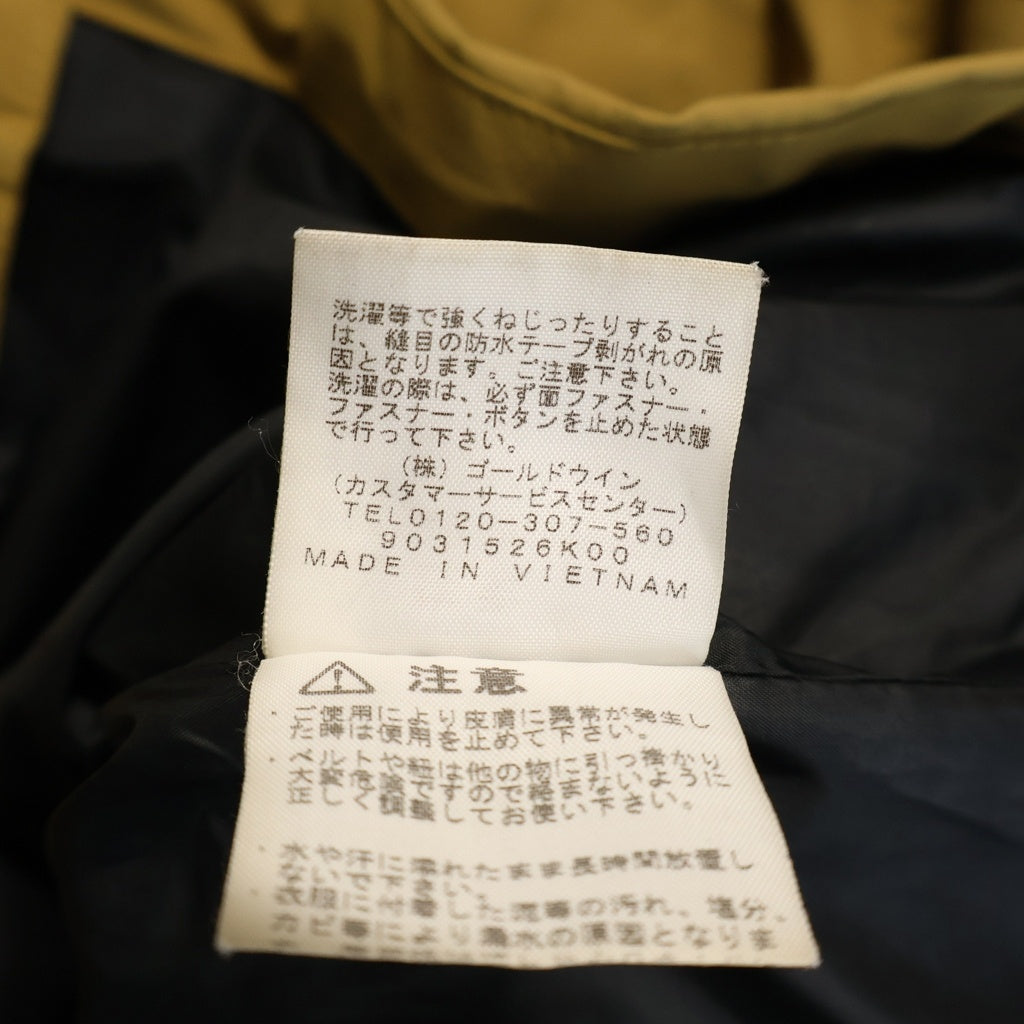 洗濯等で強くねじったりすること
は、縫目の防水テープ剥がれの原
因となります。ご注意下さい。
洗濯の際は、必ず面ファスナー・
ファスナー・ボタンを止めた状態
で行って下さい。
(株)ゴールドウイン
(カスタマーサービスセンター)
TEL0120-307-560
9031526K00
MADE IN VIETNAM
⚠ 注意
・ご使用により皮膚に異常が発生し
た時は使用を止めて下さい。
・ベルトや紐は他の物に引っ掛かり
大変危険ですので絡まないように
正しく調整してお使い下さい。
・水や汗に濡れたまま長時間放置し
ないで下さい。
・衣服に付着した泥等の汚れ、塩分、
カビ等により漏水の原因となりま